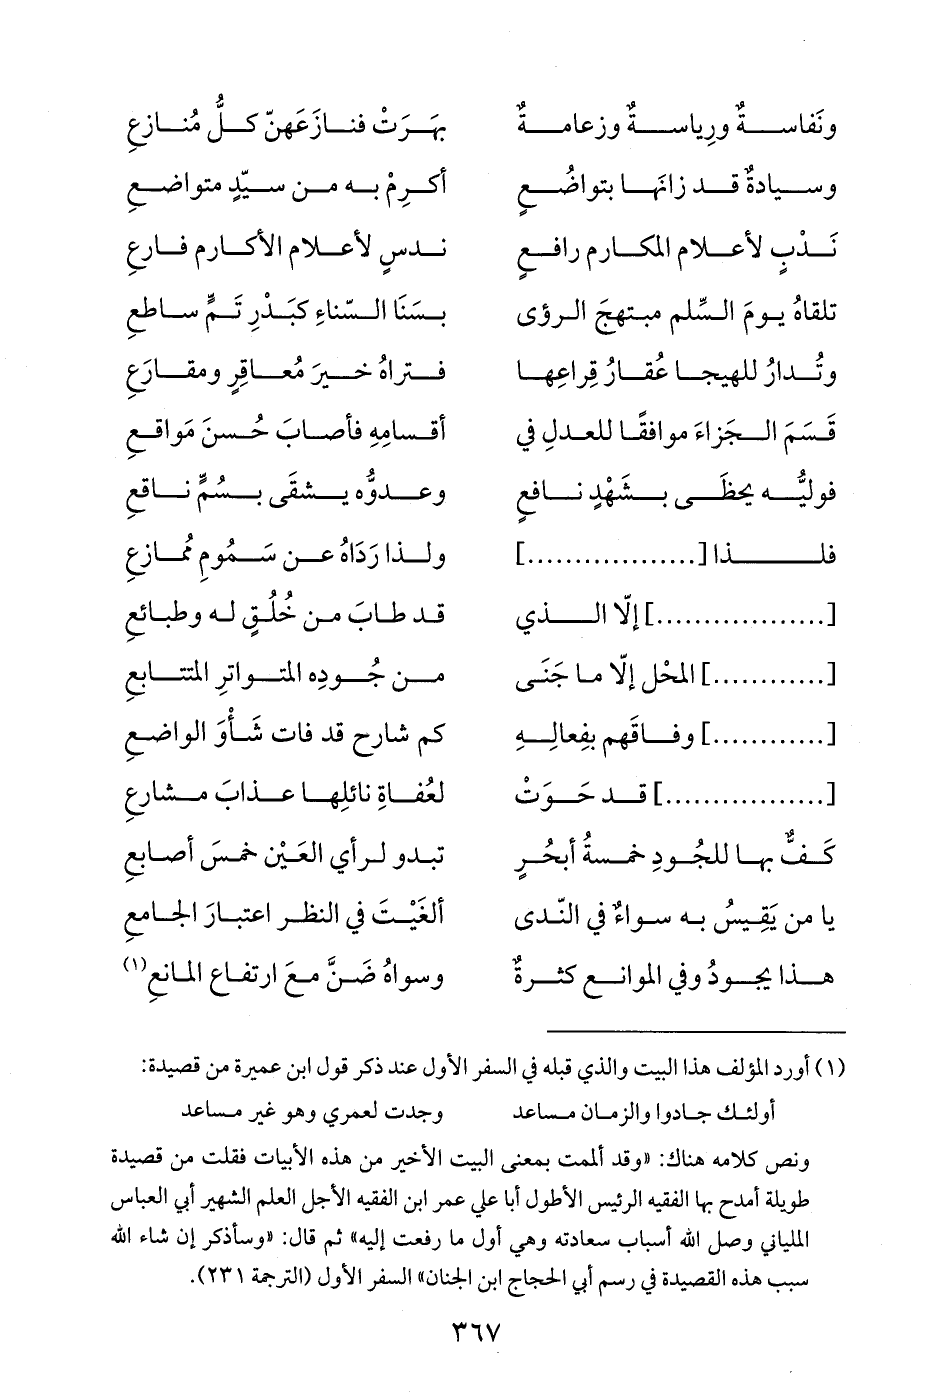 ونَفاسةٌ ورِياسةٌ وزعامةٌ بَهَرَتْ فنازَعَهنّ كلُّ مُنازعِ
وسيادةٌ قد زانَها بتواضُعٍ أكرِمْ به من سيّدٍ متواضعِ
نَدْبٍ لأعلامِ المكارمِ رافعٍ ندسٍ لأعلامِ الأكارمِ فارعِ
تلقاهُ يومَ السِّلم مبتهجَ الرؤى بسَنَا السّناءِ كبَدْرِ تَمٍّ ساطعِ
وتُدارُ للهيجا عُقارُ قِراعِها فتراهُ خيرَ مُعاقِرٍ ومقارَعِ
قَسَمَ الجَزاءَ موافقًا للعدلِ في أقسامِهِ فأصابَ حُسنَ مَواقعِ
فوليُّه يحظَى بشَهْدٍ نافعٍ وعدوُّه يشقَى بسُمٍّ ناقعِ
فلذا [..................] ولذا رَدَاهُ عن سَمُومِ مُمازعِ
[..................] إلّا الذي قد طابَ من خُلُقٍ له وطبائعِ
[............] المَحْل إلّا ما جَنَى من جُودِه المتواترِ المتتابعِ
[............] وفاقَهم بفِعالِهِ كم شارحٍ قد فات شَأْوَ الواضعِ
[.................] قد حَوَتْ لعُفاةِ نائلِها عذابَ مشارعِ
كَفٌّ بها للجُودِ خمسةُ أبحُرٍ تبدو لرأيِ العَيْنِ خمسَ أصابعِ
يا من يَقِيسُ به سواءً في النّدى ألغَيْتَ في النظرِ اعتبارَ الجامعِ
هذا يجودُ وفي الموانعِ كثرةٌ وسواهُ ضَنَّ معَ ارتفاعِ المانعِ(١)
(١) أورد المؤلف هذا البيت والذي قبله في السفر الأول عند ذكر قول ابن عميرة من قصيدة:
أولئك جادوا والزمان مساعد وجدت لعمري وهو غير مساعد
ونص كلامه هناك: «وقد ألممت بمعنى البيت الأخير من هذه الأبيات فقلت من قصيدة
طويلة أمدح بها الفقيه الرئيس الأطول أبا علي عمر ابن الفقيه الأجل العلم الشهير أبي العباس
الملياني وصل الله أسباب سعادته وهي أول ما رفعت إليه» ثم قال: «وسأذكر إن شاء الله
سبب هذه القصيدة في رسم أبي الحجاج ابن الجنان» السفر الأول (الترجمة ٢٣١).
٣٦٧